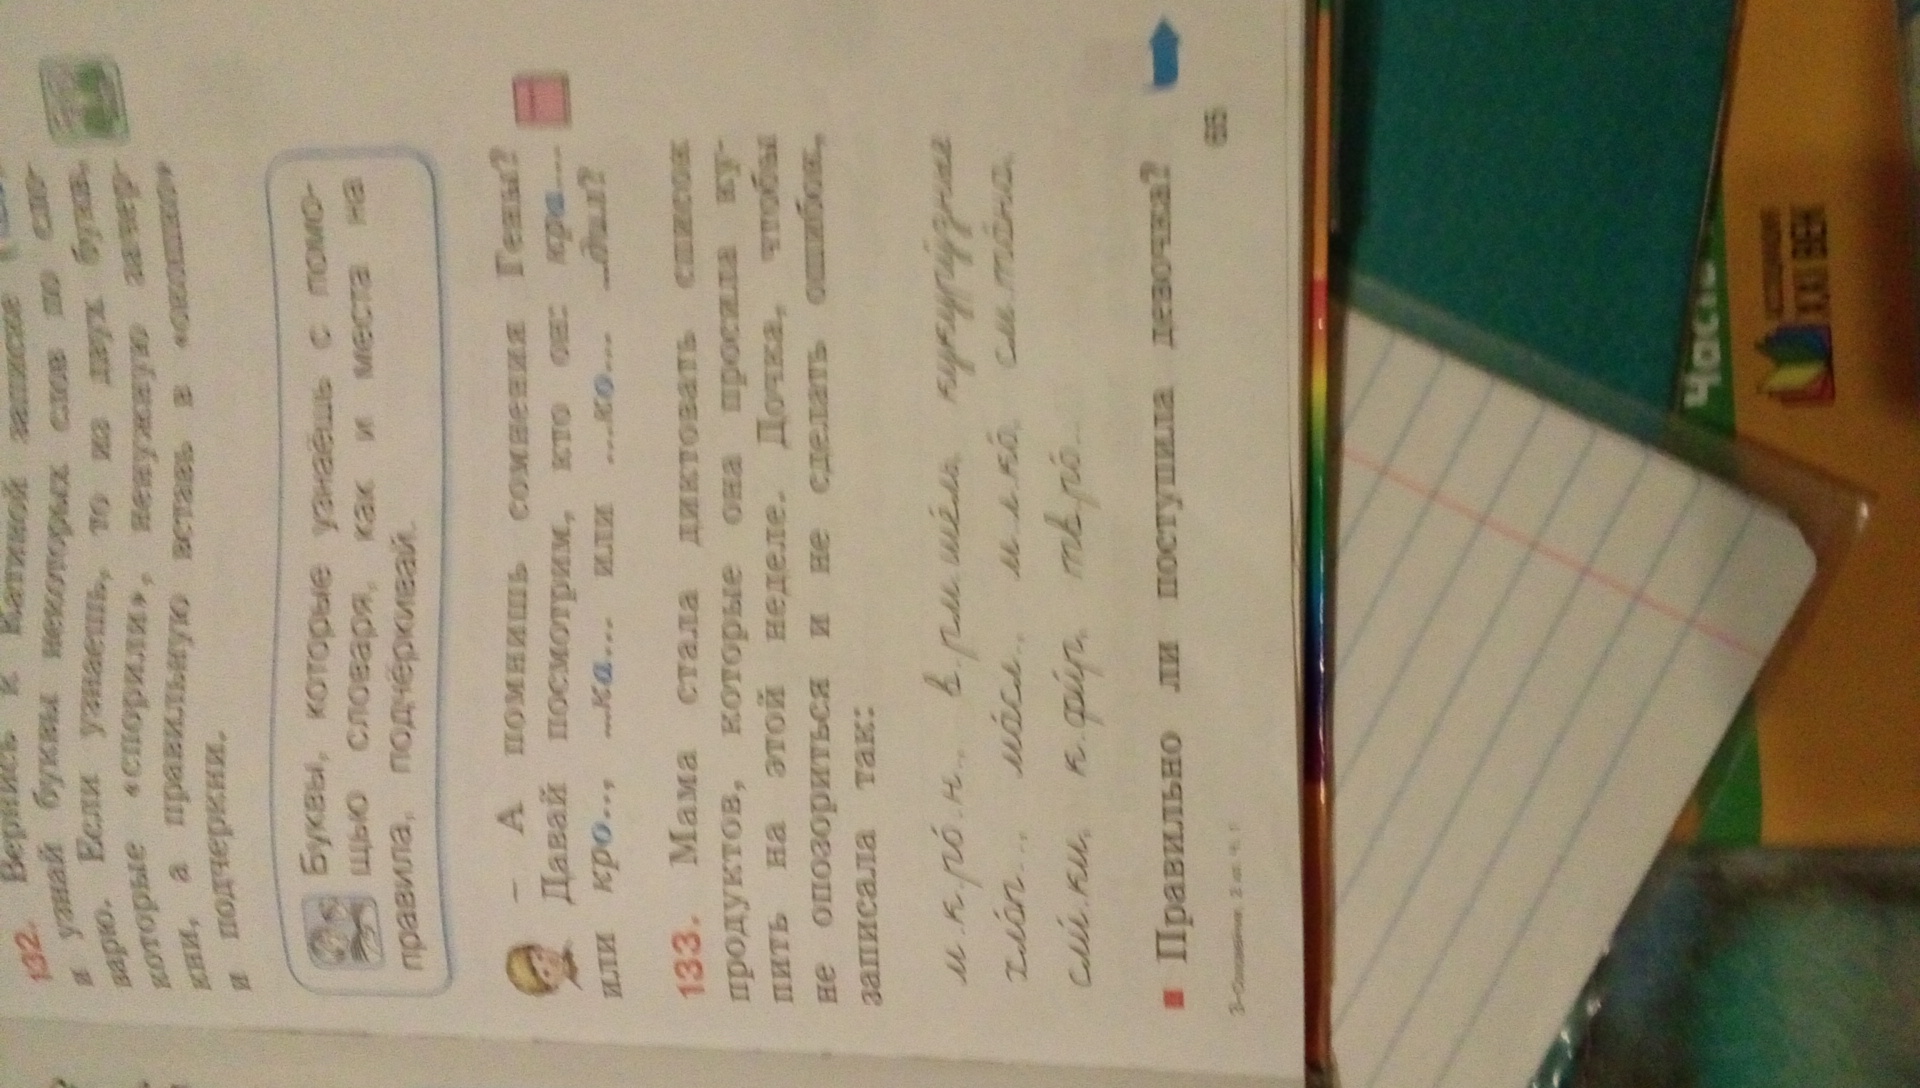 132. Вернись к Катиной записке
и узнай буквы некоторых слов по сло-
варю. Если узнаешь, то из двух букв,
которые «спорили», ненужную зачер-
кни, а правильную вставь в «окошко»
и подчеркни.
Буквы, которые узнаёшь с помо-
щью словаря, как и места на
правила, подчёркивай.
– А помнишь сомнения Гены?
Давай посмотрим, кто он: кра...
или кро..., ...ка... или ...ко... ...дил?
133. Мама стала диктовать список
продуктов, которые она просила ку-
пить на этой неделе. Дочка, чтобы
не опозориться и не сделать ошибок,
записала так:
м.к.ро́.н., в.рм.ше́ль, кукуру́зные
хло́п.., ма́сл., м.л.ко́, см.та́на,
сли́.ки, к.фи́р, тв.ро́...
Правильно ли поступила девочка?
65
ЧАСТЬ
XXI ВЕК